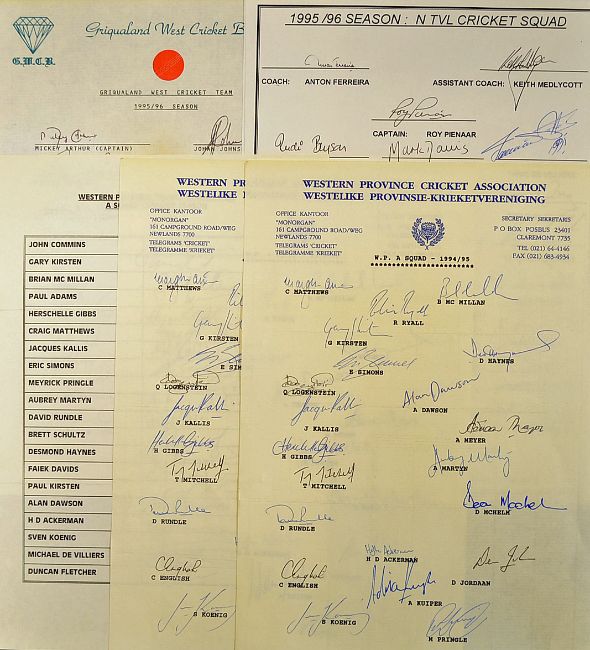 Griqualand West Cricket B
G.W.C.B.
GRIQUALAND WEST CRICKET TEAM
1995/96 SEASON
MICKEY ARTHUR (CAPTAIN)
JOHAN JOHNS
1995/96 SEASON : N TVL CRICKET SQUAD
COACH: ANTON FERREIRA
ASSISTANT COACH: KEITH MEDLYCOTT
Roy Pienaar
CAPTAIN: ROY PIENAAR
WESTERN P
A S
JOHN COMMINS
GARY KIRSTEN
BRIAN MC MILLAN
PAUL ADAMS
HERSCHELLE GIBBS
CRAIG MATTHEWS
JACQUES KALLIS
ERIC SIMONS
MEYRICK PRINGLE
AUBREY MARTYN
DAVID RUNDLE
BRETT SCHULTZ
DESMOND HAYNES
FAIEK DAVIDS
PAUL KIRSTEN
ALAN DAWSON
H D ACKERMAN
SVEN KOENIG
MICHAEL DE VILLIERS
DUNCAN FLETCHER
WESTERN PR
WESTELIKE
OFFICE KANTOOR
"MONORGAN"
161 CAMPGROUND ROAD/WEG
NEWLANDS 7700
TELEGRAMS 'CRICKET'
TELEGRAMME 'KRIEKET'
C MATTHEWS
G KIRSTEN
E SIM
Q LOGENSTEIN
J KALLIS
H GIBBS
T MITCHELL
D RUNDLE
C ENGLISH
S KOENIG
WESTERN PROVINCE CRICKET ASSOCIATION
WESTELIKE PROVINSIE-KRIEKETVERENIGING
OFFICE KANTOOR
"MONORGAN"
161 CAMPGROUND ROAD/WEG
NEWLANDS 7700
TELEGRAMS 'CRICKET'
TELEGRAMME 'KRIEKET'
SECRETARY SEKRETARIS
P O BOX POSBUS 23401
CLAREMONT 7735
TEL (021) 64-4146
FAX (021) 683-4934
W.P. A SQUAD - 1994/95
C MATTHEWS
B MC MILLAN
R RYALL
G KIRSTEN
E SIMONS
D HAYNES
Q LOGENSTEIN
Alan Dawson
A DAWSON
J KALLIS
A MEYER
H GIBBS
A MARTYN
T MITCHELL
D MCHELM
D RUNDLE
H D ACKERMAN
C ENGLISH
D JORDAAN
A KUIPER
S KOENIG
M PRINGLE